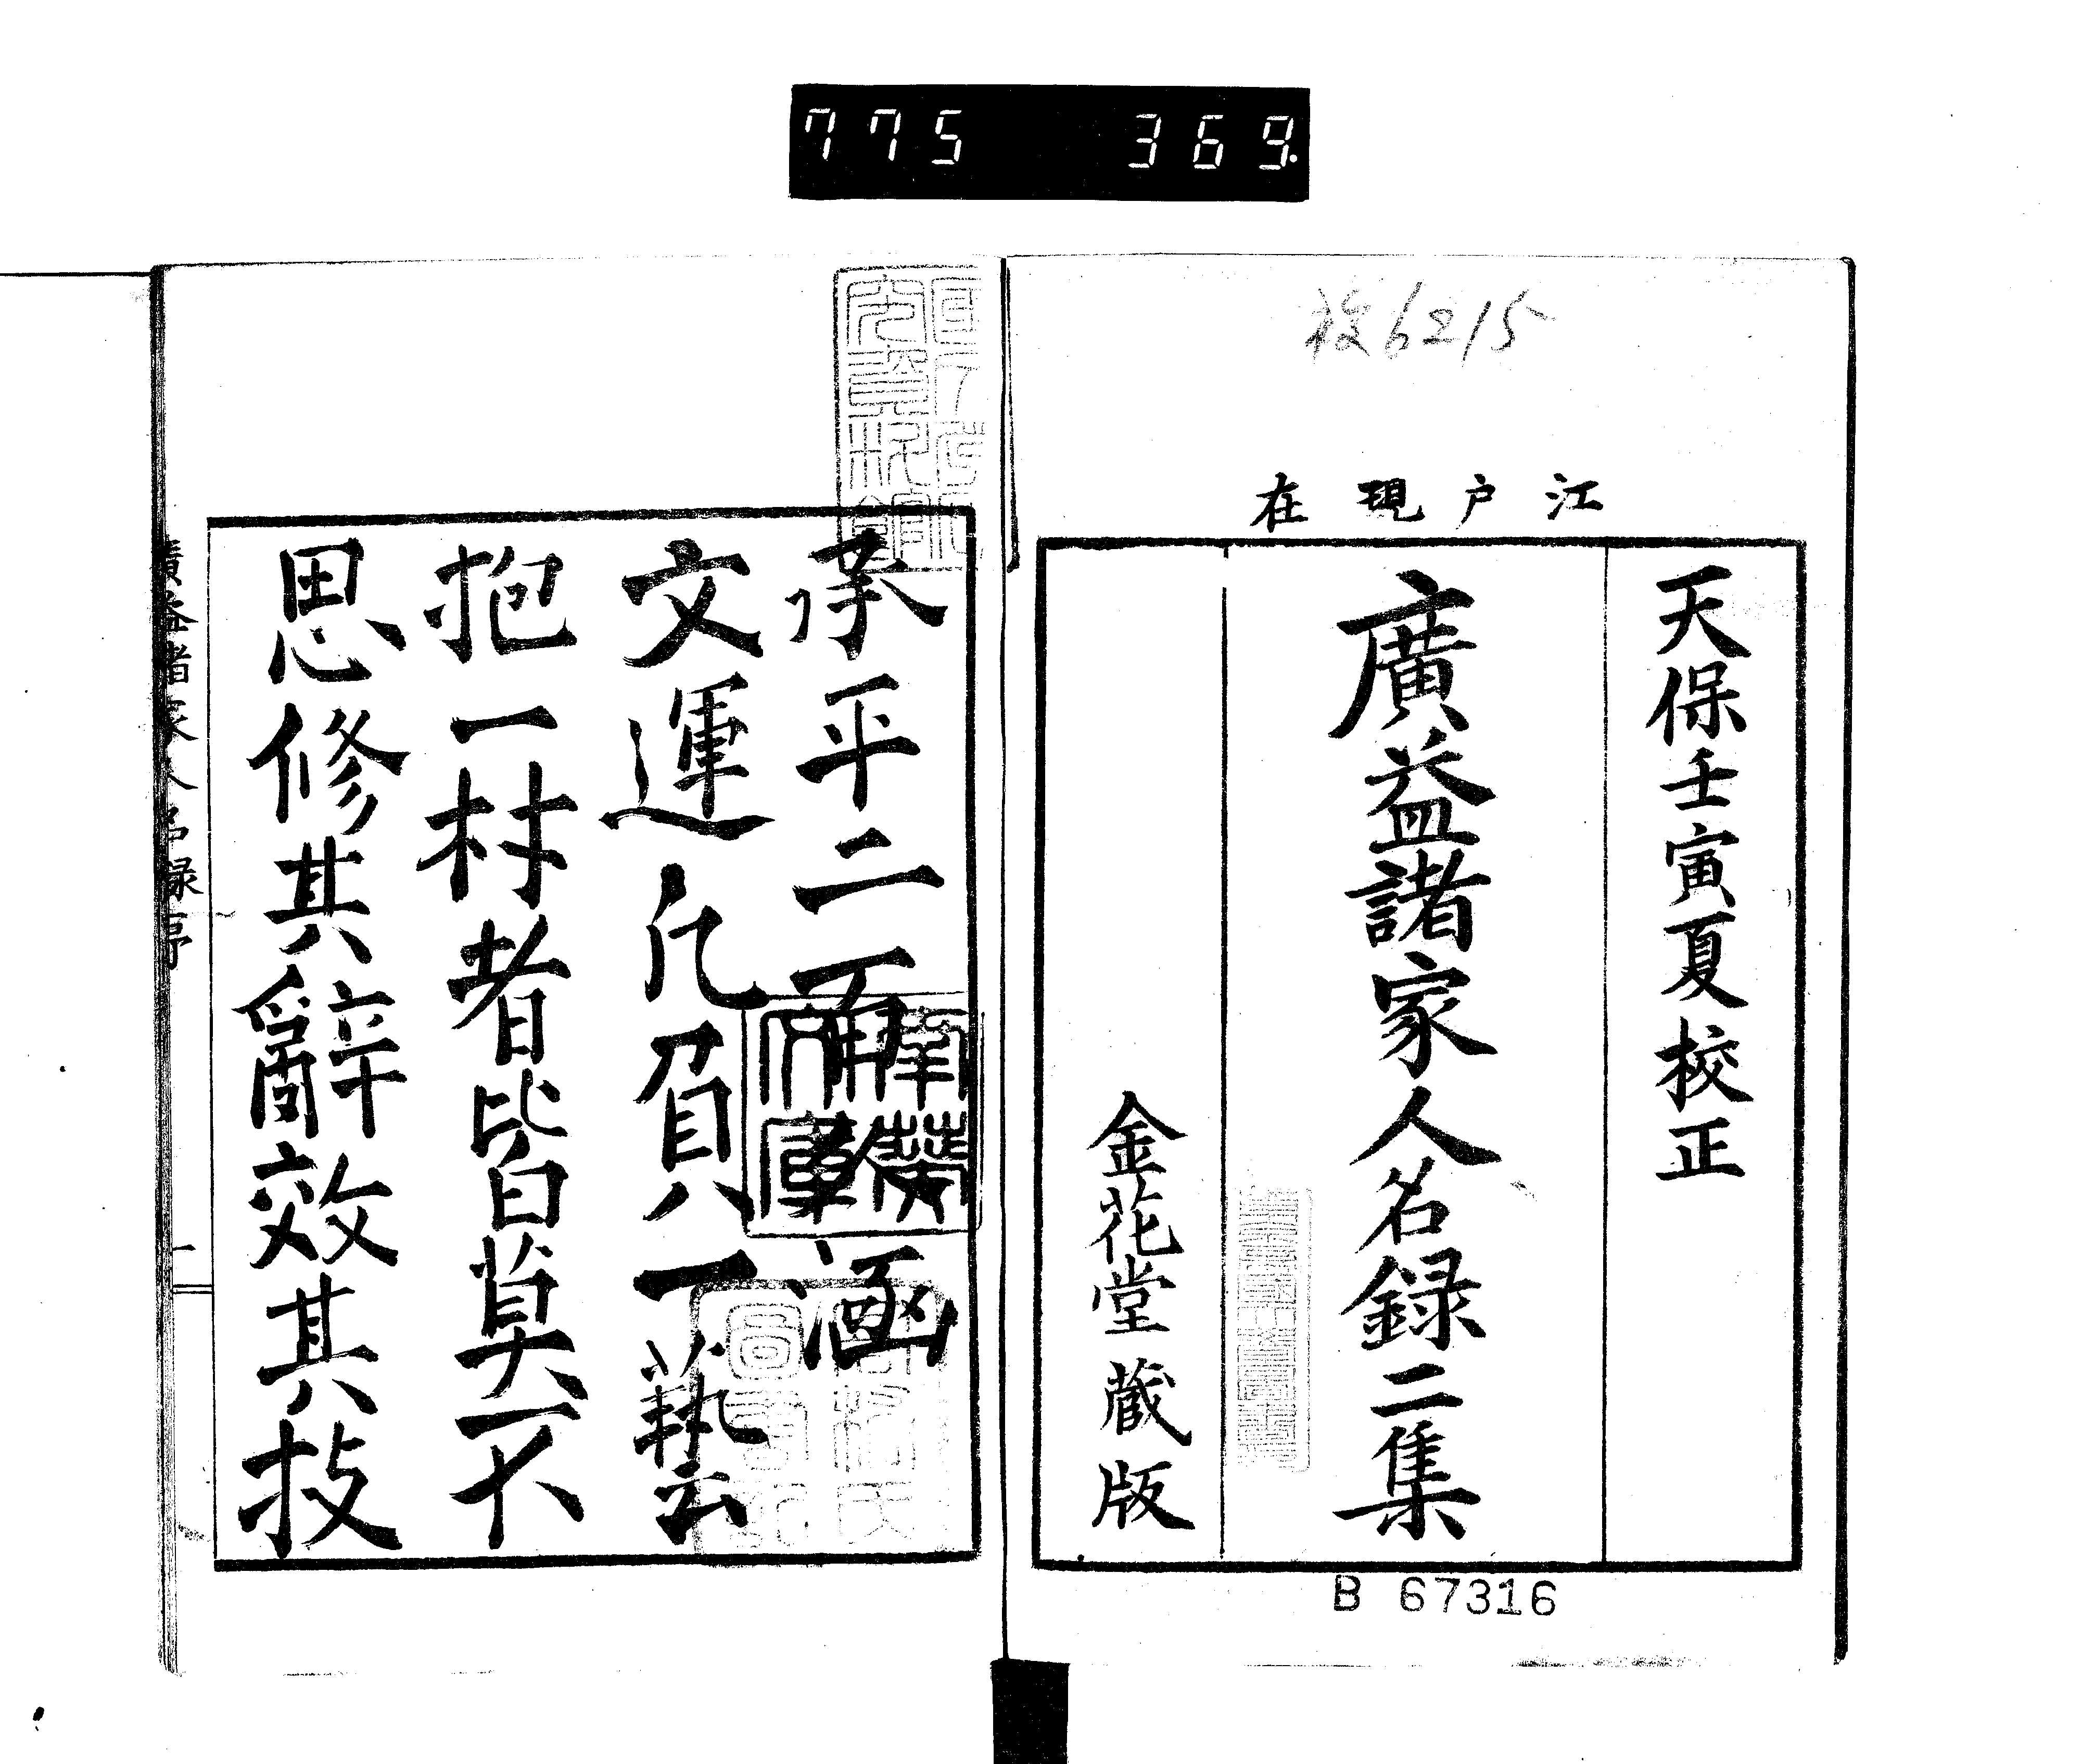 775 369.
校6215
江戸現在
天保壬寅夏校正
廣益諸家人名録二集
金花堂蔵版
B 67316
承平二百涵
文運凡負一藝
抱一材者皆莫不
思修其辭效其技
廣益諸家人名録序
一